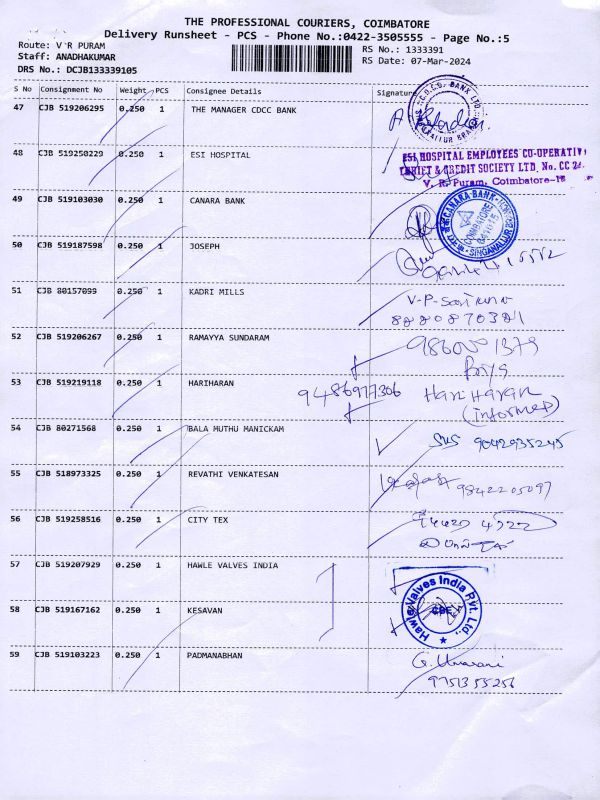 THE PROFESSIONAL COURIERS, COIMBATORE
Delivery Runsheet - PCS - Phone No.:0422-3505555 - Page No.:5
Route: V R PURAM
Staff: ANADHAKUMAR
DRS No.: DCJB133339105
RS No.: 1333391
RS Date: 07-Mar-2024
S No Consignment No Weight PCS Consignee Details Signature
47 CJB 519206295 0.250 1 THE MANAGER CDCC BANK
C.D.C.C. BANK LTD.
SINGANALLUR BRANCH
48 CJB 519250229 0.250 1 ESI HOSPITAL
ESI HOSPITAL EMPLOYEES CO-OPERATIV
THRIFT & CREDIT SOCIETY LTD, No. CC 24
V. R. Puram, Coimbatore-15
49 CJB 519103030 0.250 1 CANARA BANK
CANARA BANK
COIMBATORE
SINGANALLUR
50 CJB 519187598 0.250 1 JOSEPH
51 CJB 80157099 0.250 1 KADRI MILLS
V-P-
8220870321
52 CJB 519206267 0.250 1 RAMAYYA SUNDARAM
Priya
53 CJB 519219118 0.250 1 HARIHARAN
9486977306 Hari Haran
(informed)
54 CJB 80271568 0.250 1 BALA MUTHU MANICKAM
9042935245
55 CJB 518973325 0.250 1 REVATHI VENKATESAN
9842205097
56 CJB 519258516 0.250 1 CITY TEX
57 CJB 519207929 0.250 1 HAWLE VALVES INDIA
Hawle Valves India Pvt. Ltd.,
CBE
58 CJB 519167162 0.250 1 KESAVAN
59 CJB 519103223 0.250 1 PADMANABHAN
G. Umarani
9751355256